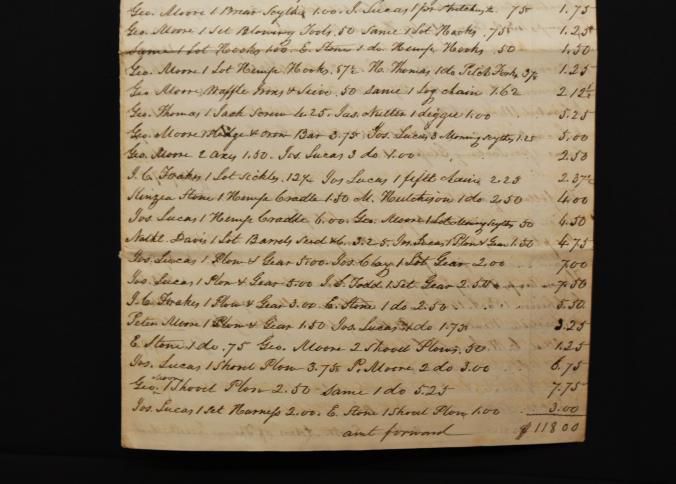 Geo. Moore 1 Briar Scythe 1.00 J. Lucas 1 pr 75 1.75
Geo. Moore 1 Set Blowing Tools .50 Same 1 Lot Hooks .75 1.25
Same 1 Lot Hooks 1.00 E. Stone 1 do Hemp Hooks .50 1.50
Geo. Moore 1 Lot Hemp Hooks .87½ H. Thomas 1 do Pitch Forks 37½ 1.25
Geo Moore Waffle Irons & Seive .50 Same 1 Log chain 1.62 2.12½
Geo. Thomas 1 Jack Screw 4.25 Jas. Nutter 1 diggie 1.00 5.25
Geo. Moore & Crow Bar 3.75 Jos. Lucas 3 Mowing Scythes 1.25 5.00
Geo. Moore 2 axes 1.50. Jos Lucas 3 do 1.00 2.50
J. C. Frakes 1 Lot Sickles .12½ Jos Lucas 1 fifth chain 2.25 2.37½
Stone 1 Hemp Cradle 1.50 M. Hutchison 1 do 2.50 4.00
Jos Lucas 1 Hemp Cradle 6.00. Geo. Moore 1 Lot Mowing Scythes 50 6.50
Nathl. Davis 1 Lot Barrels Seed &c. 3.25. Jos. Lucas 1 Plow & Gear 1.50 4.75
Jos. Lucas 1 Plow & Gear 5.00 Jos. Clay 1 Lot Gear 2.00 7.00
Jos. Lucas 1 Plow & Gear 5.00 J. S. Todd 1 Set Gear 2.50 7.50
J. C. Frakes 1 Plow & Gear 3.00 E. Stone 1 do 2.50 5.50
Peter Moore 1 Plow & Gear 1.50 Jos. Lucas do 1.75 3.25
E Stone 1 do .75 Geo. Moore 2 Shovel Plows .50 1.25
Jos. Lucas 1 Shovel Plow 3.75 P. Moore 2 do 3.00 6.75
Geo. Moore 1 Shovel Plow 2.50 Same 1 do 5.25 7.75
Jos. Lucas 1 Set Harness 2.00. E. Stone 1 Shovel Plow 1.00 3.00
amt forward $118 00